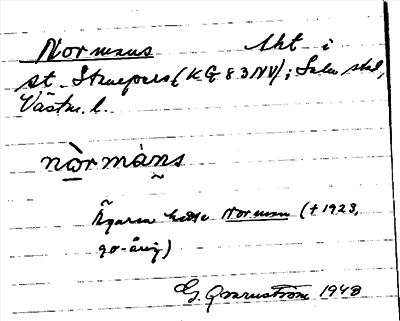 Normans 1kt i
st. Starfors (KG 83 NV); Sala stad,
Västm. l.
nòrmàns
Ägaren hette Norman († 1923,
90-årig)
G. Qvarnström 1948